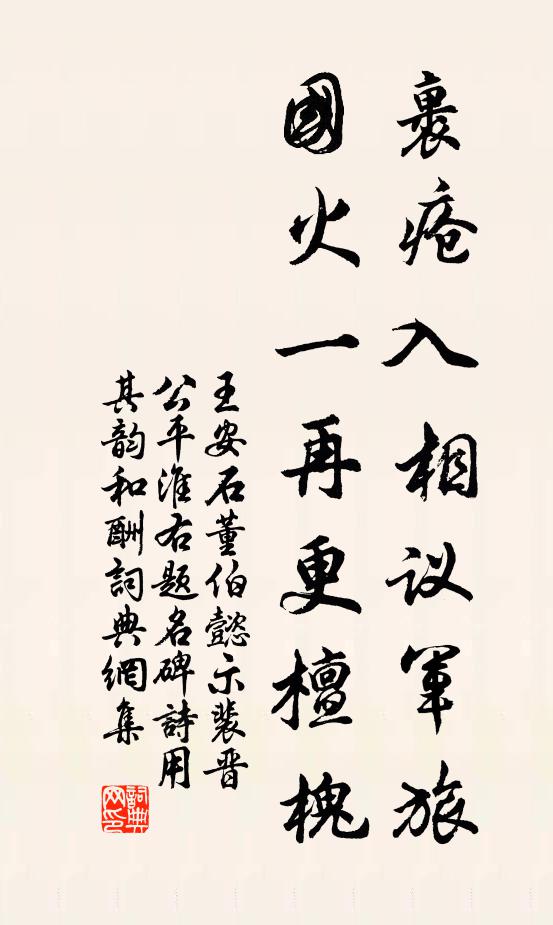 裹瘡入相议軍旅
國火一再更檀槐
王安石董伯懿示裴晋
公平淮右题名碑詩用
其韵和酬詞典網集
詞典
网印